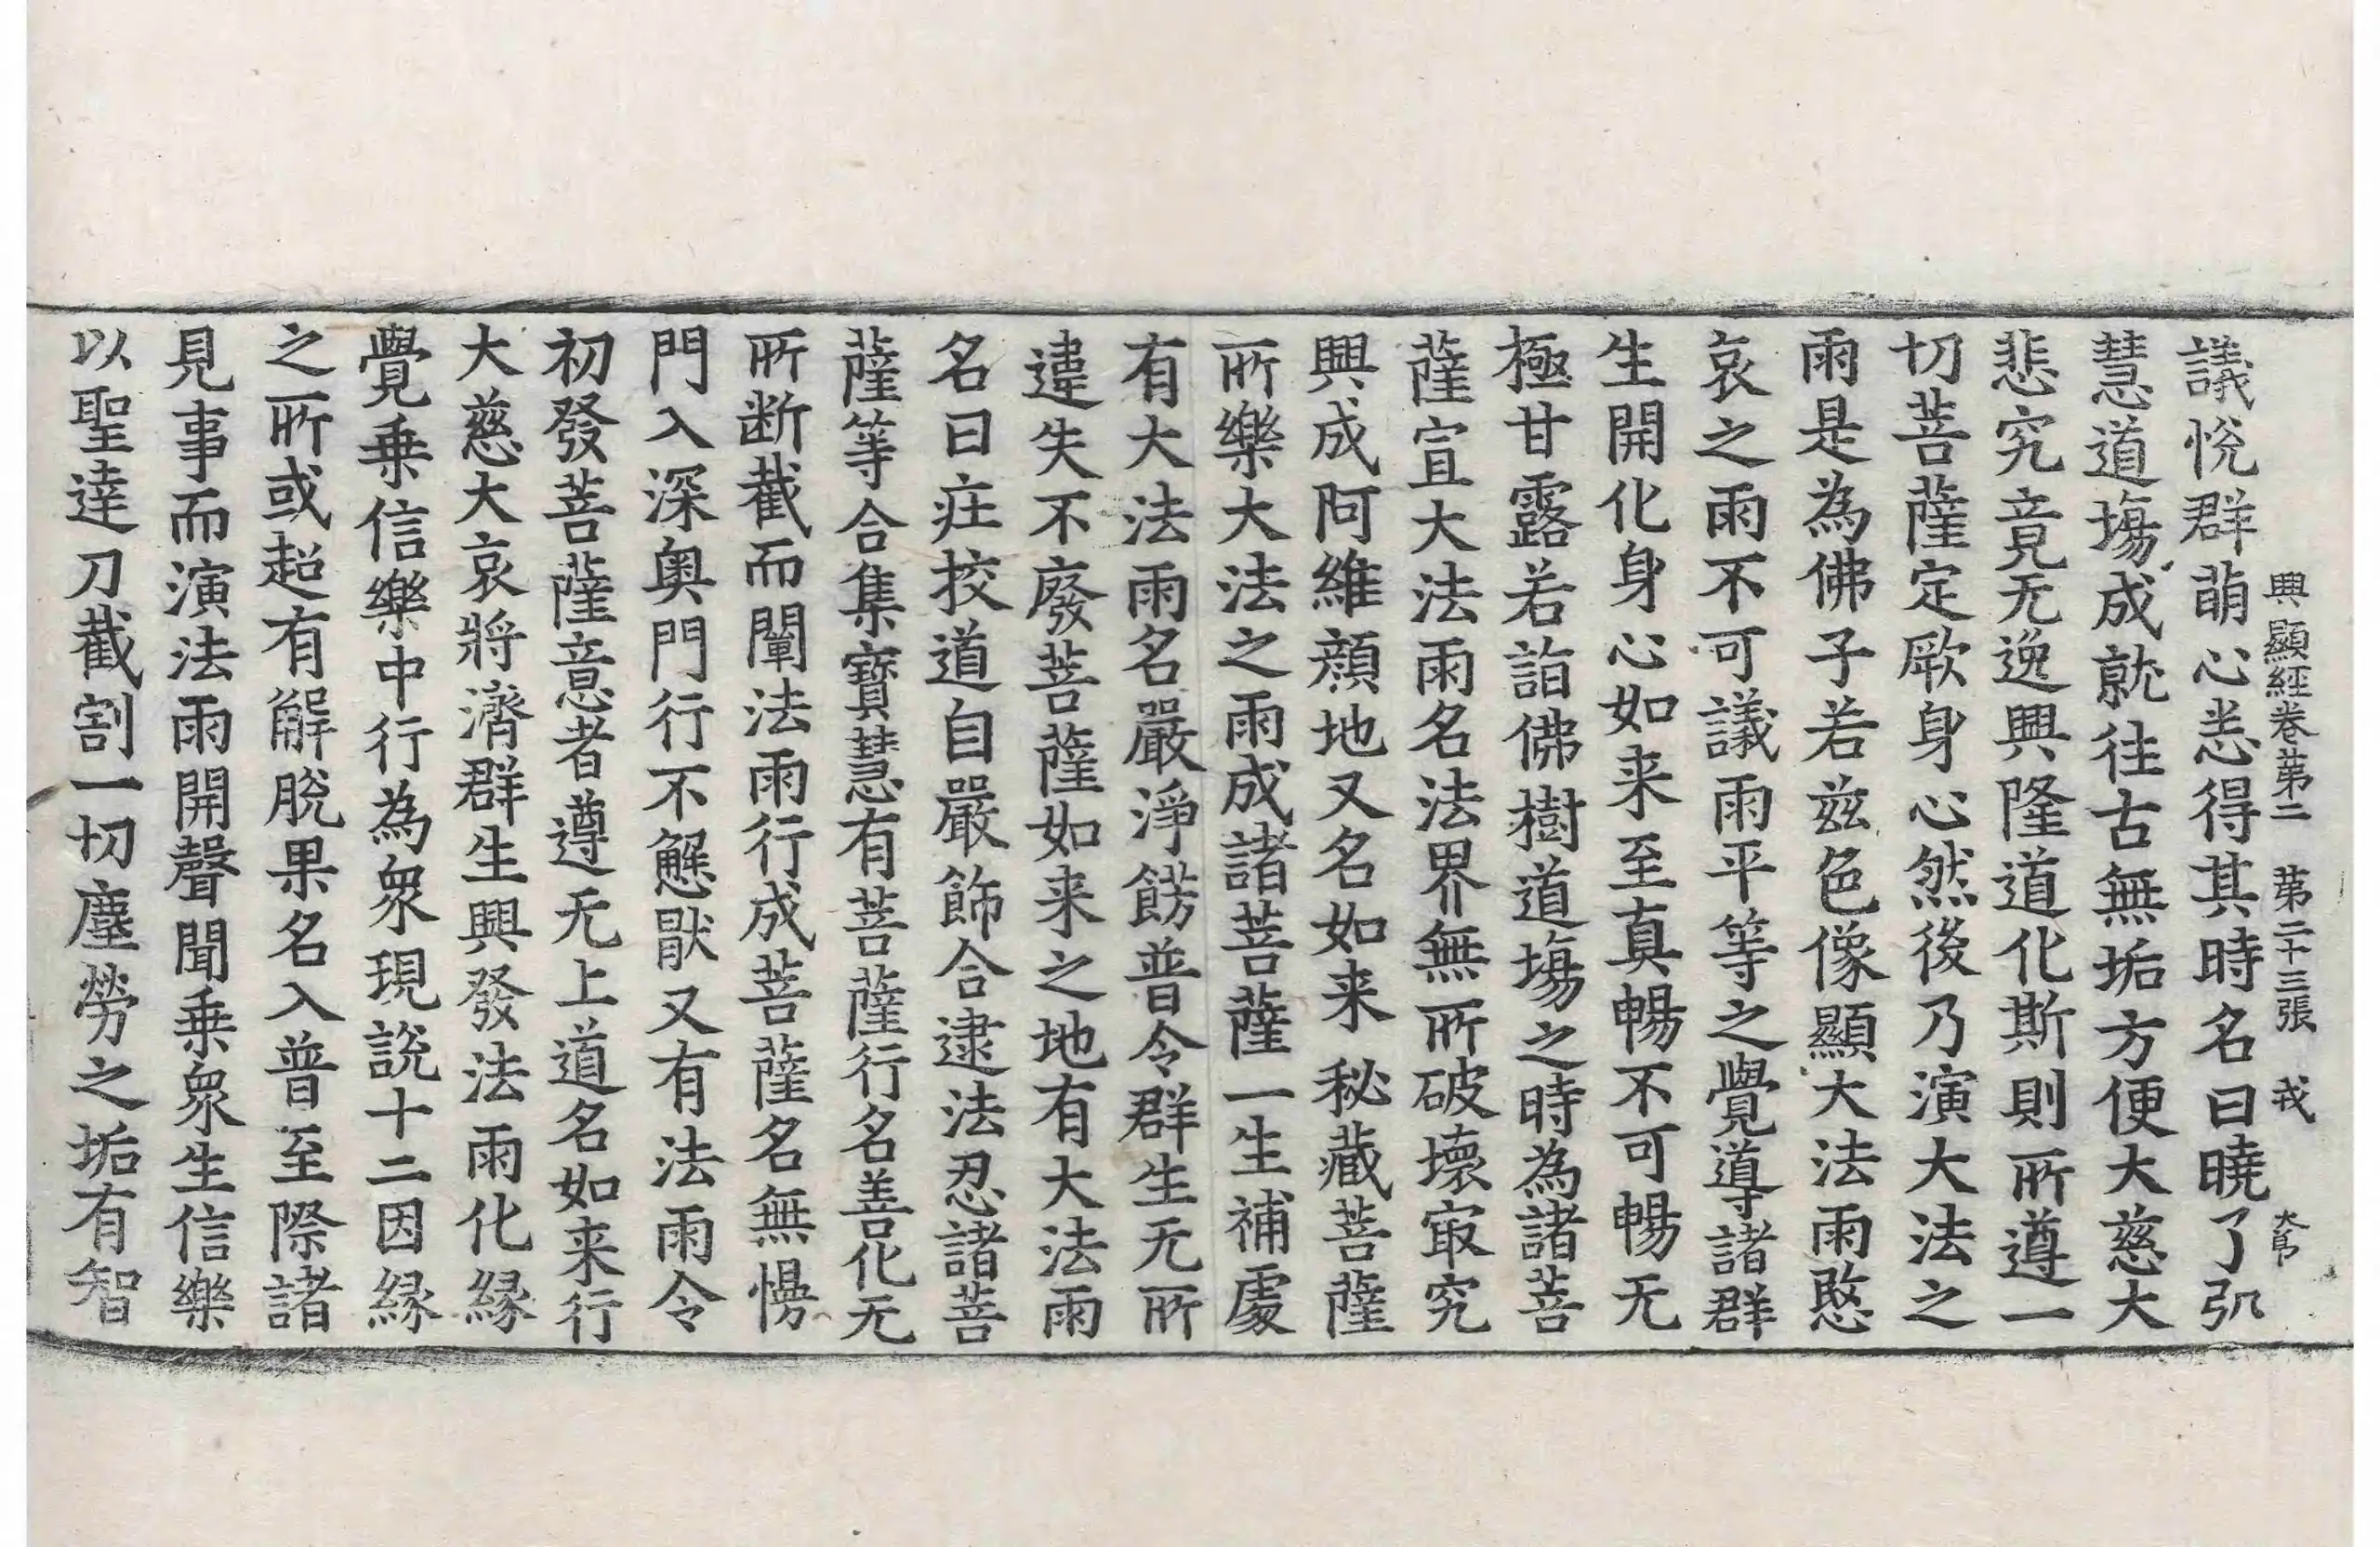 興顯經卷第二 第二十三張 戎 大甯
議悅群萌心恙得其時名曰曉了弘
慧道場成就往古無垢方便大慈大
悲究竟无逸興隆道化斯則所遵一
切菩薩定厥身心然後乃演大法之
雨是為佛子若兹色像顯大法雨愍
哀之雨不可議雨平等之覺導諸群
生開化身心如来至真暢不可暢无
極甘露若詣佛樹道場之時為諸菩
薩宣大法雨名法界無所破壞㝡究
興成阿維顔地又名如来秘藏菩薩
所樂大法之雨成諸菩薩一生補處
有大法雨名嚴淨餝普令群生无所
違失不廢菩薩如来之地有大法雨
名曰庄挍道自嚴飾合逮法忍諸菩
薩等合集寶慧有菩薩行名善化无
所断截而闡法雨行成菩薩名無慢
門入深奥門行不懈猒又有法雨令
初發菩薩意者遵无上道名如来行
大慈大哀將濟群生興發法雨化緣
覺乗信樂中行為衆現說十二因緣
之所或超有解脫果名入普至際諸
見事而演法雨開聲聞乗衆生信樂
以聖達刀截割一切塵勞之垢有智